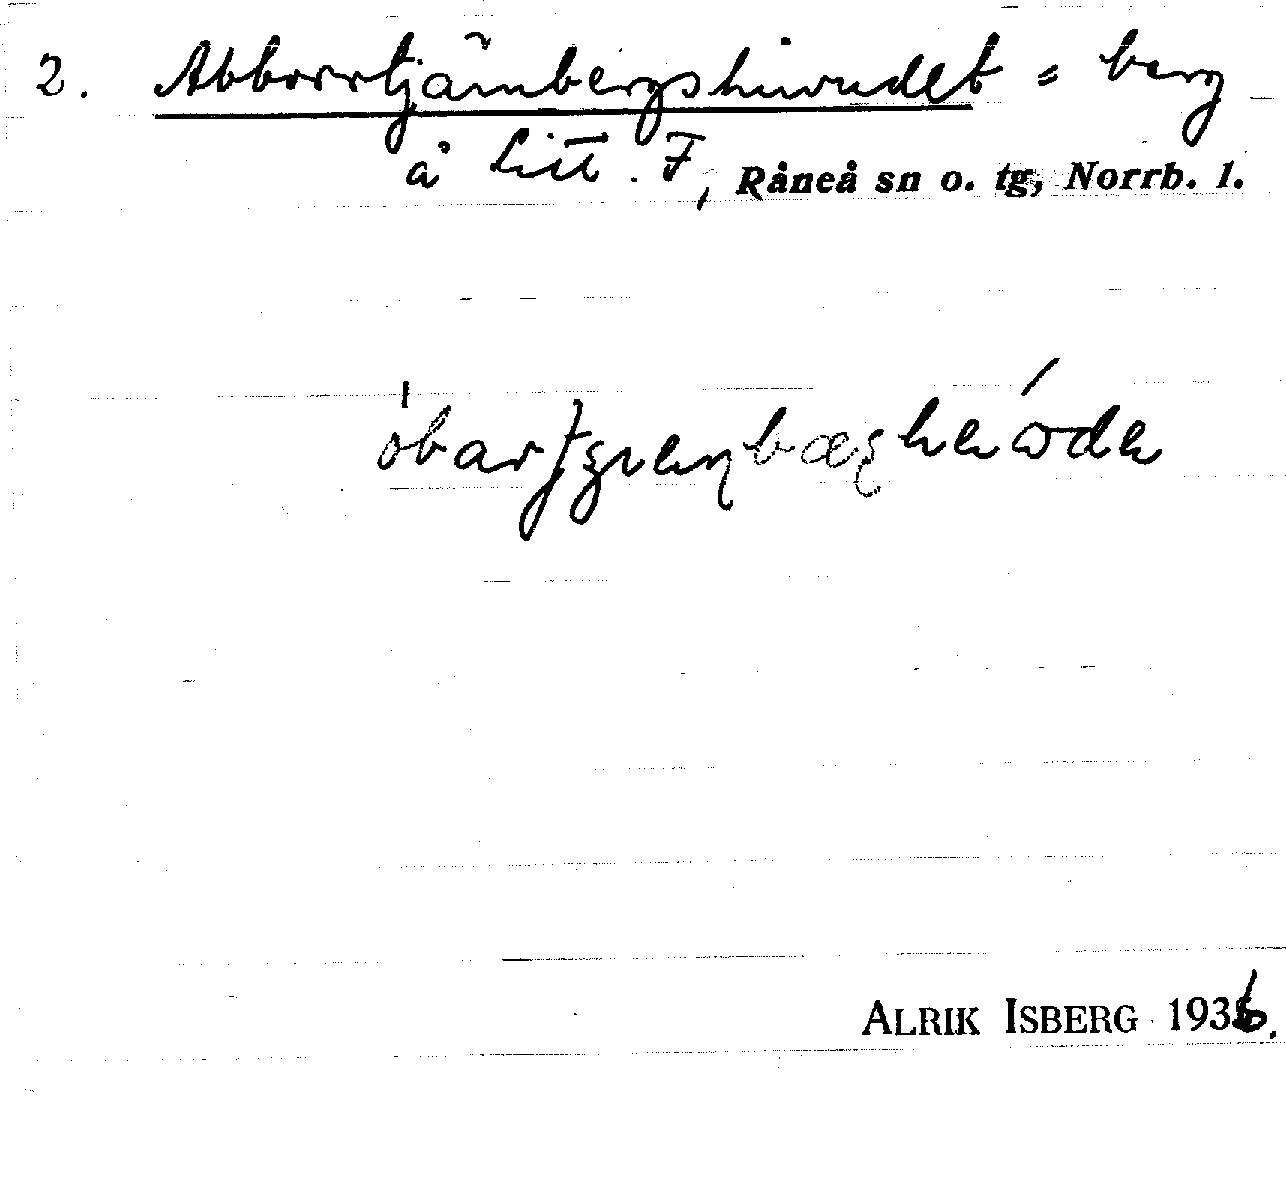 2. Abborrtjärnbergshuvudet = berg
å Litt. F, Råneå sn o. tg, Norrb. l.
ALRIK ISBERG 1936.